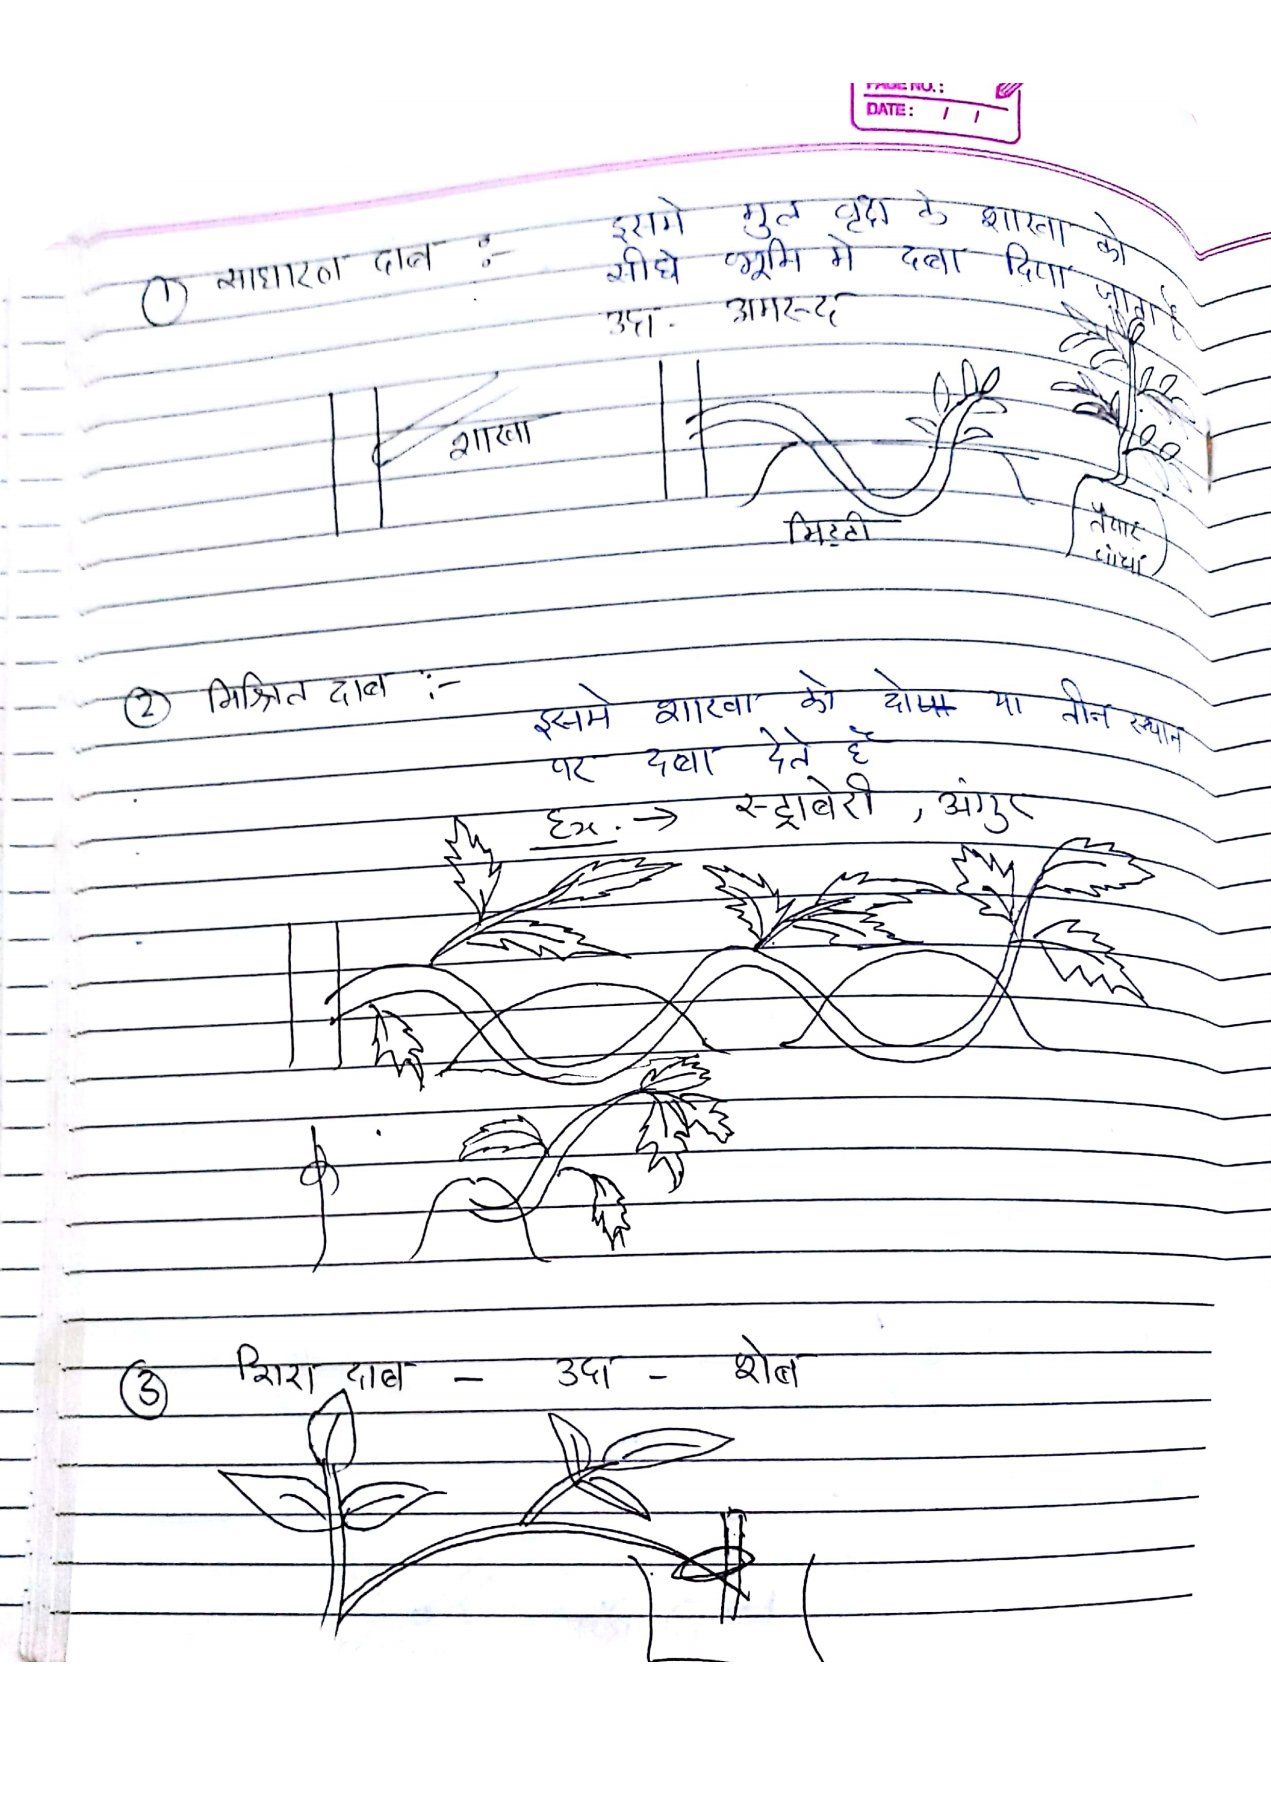 PAGE NO.:
DATE: / /
① साधारण दाब :-
इसमे मुल वृक्ष के शाखा को
सीधे भूमि मे दबा दिया जाता है
उदा. अमरूद
शाखा
मिट्टी
तैयार
② मिश्रित दाब :-
इसमे शाखा को दो या तीन स्थान
पर दबा देते है
Ex. → स्ट्राबेरी , अंगुर
③ शिरा दाब - उदा - शेब